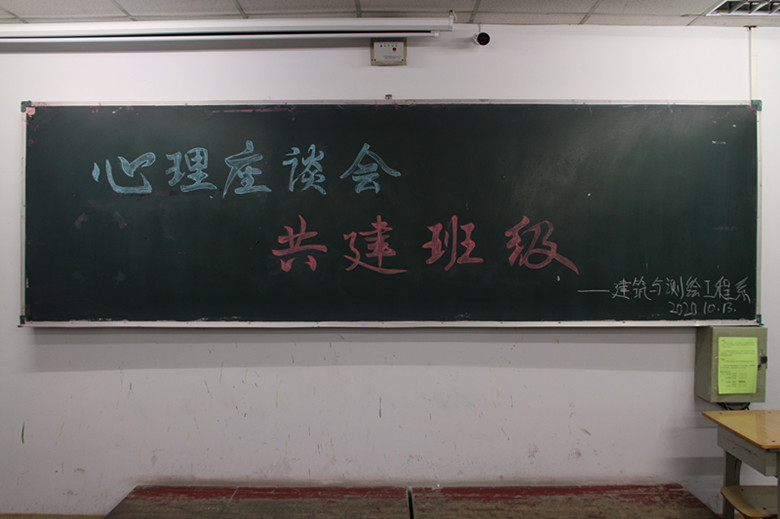 心理座谈会
共建班级
——建筑与测绘工程系
2020.10.13.